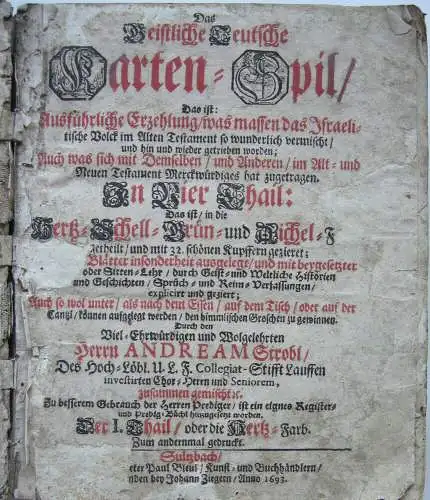 Das
Geistliche Teutsche
Karten-Spil/
Das ist:
Ausführliche Erzehlung/ was massen das Israeli-
tische Volck im Alten Testament so wunderlich vermischt/
und hin und wieder getrieben worden;
Auch was sich mit Demselben/ und Anderen/ im Alt- und
Neuen Testament Merckwürdiges hat zugetragen.
In Vier Thail:
Das ist/ in die
Hertz-Schell-Grün- und Aichel-F
getheilt/ und mit 32. schönen Kupffern gezieret;
Blätter insonderheit ausgelegt/ und mit beygesetzter
oder Sitten-Lehr/ durch Geist- und Weltliche Historien
und Geschichten/ Sprüch- und Reim-Verfassungen/
explicirt und geziert;
Auch so wol unter/ als nach dem Essen/ auf dem Tisch/ oder auf der
Cantzl/ können aufgelegt werden/ den himmlischen Groschen zu gewinnen.
Durch den
Viel-Ehrwürdigen und Wolgelehrten
Herrn ANDREAM Strobl/
Des Hoch-Löbl. U. L. F. Collegiat-Stifft Lauffen
investirten Chor-Herrn und Seniorem,
zusammen gemischt &c.
Zu besserem Gebrauch der Herren Prediger/ ist ein eignes Register-
und Predig-Büchl hinzugesetzt worden.
Der I. Thail/ oder die Hertz-Farb.
Zum andernmal gedruckt.
Sultzbach/
eter Paul Bleul/ Kunst- und Buchhändlern/
nden bey Johann Ziegern/ Anno 1693.